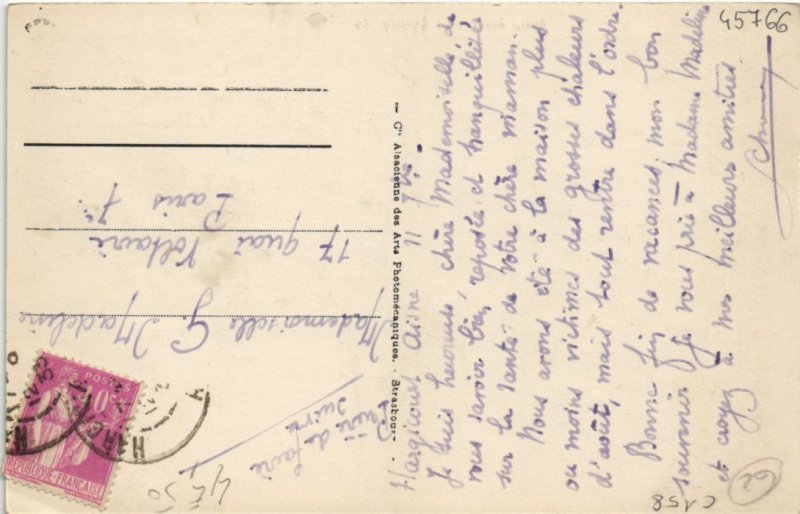 Hargicourt Aisne 11
Je suis heureuse chère Mademoiselle de
vous savoir bien reposée et tranquillisée
sur la santé de votre chère maman.
Nous avons été à la maison plus
ou moins victimes des grosses chaleurs
d'août, mais tout rentre dans l'ordre.
Bonne fin de vacances, mon bon
souvenir je vous prie à Madame Madeline
et croyez à mes meilleurs amitiés
Mademoiselle G. Madeline
17 quai Voltaire
Paris 7e
Prière de faire
suivre
— Cie Alsacienne des Arts Photomécaniques. - Strasbourg —
POSTES
REPUBLIQUE FRANÇAISE
45766
4F50
62
C158